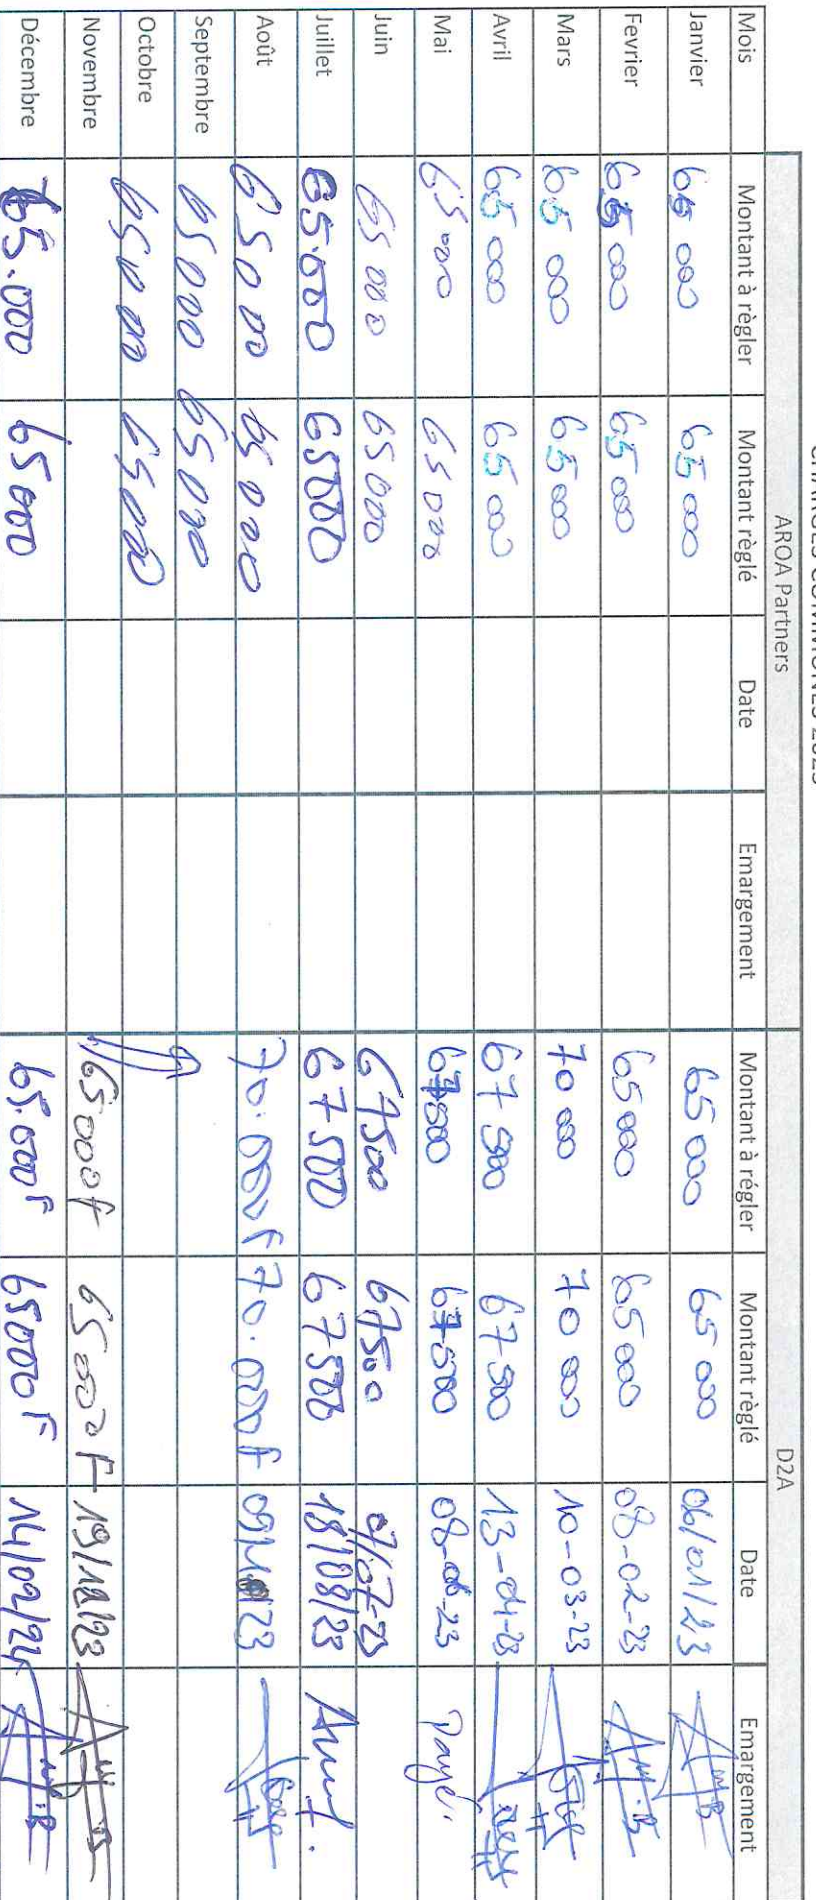 CHARGES COMMUNES 2023
AROA Partners D2A
Mois Montant à règler Montant règlé Date Emargement Montant à régler Montant règlé Date Emargement
Janvier 65 000 65 000 65 000 65 000 06/01/23
Fevrier 65 000 65 000 65 000 65 000 08-02-23
Mars 65 000 65 000 70 000 70 000 10-03-23
Avril 65 000 65 000 67 500 67 500 13-04-23
Mai 65 000 65 000 67500 67500 08-06-23 Payé
Juin 65 000 65 000 67500 67500 07/07-23
Juillet 65.000 65000 67500 67500
Août 65000 65000 70.000 F 70.000 F
Septembre 65000 65000
Octobre 65000 65000
Novembre 65000 F 65000 F 19/12/23
Décembre 65.000 65000 65.000 F 65000 F 14/02/24